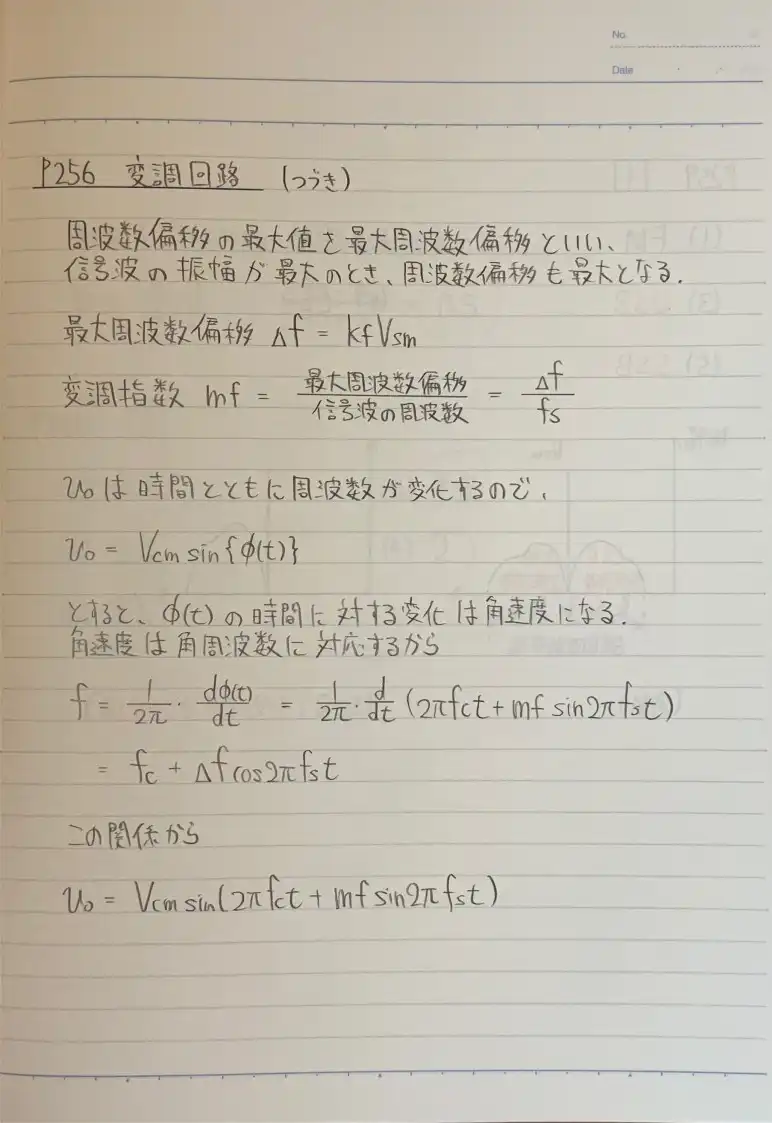 No.
Date
P256 変調回路 (つづき)
周波数偏移の最大値を最大周波数偏移といい、
信号波の振幅が最大のとき、周波数偏移も最大となる.
最大周波数偏移 Δf = kfVsm
変調指数 mf = 最大周波数偏移/信号波の周波数 = Δf/fs
υo は時間とともに周波数が変化するので、
υo = Vcm sin{φ(t)}
とすると、φ(t) の時間に対する変化は角速度になる.
角速度は角周波数に対応するから
f = 1/2π · dφ(t)/dt = 1/2π · d/dt (2πfct + mf sin2πfst)
= fc + Δf cos2πfst
この関係から
υo = Vcm sin(2πfct + mf sin2πfst)